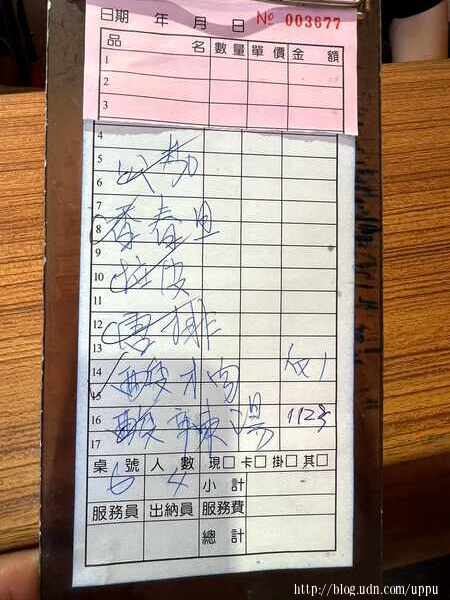 日期 年 月 日 № 003677
品名 數量 單價 金額
1
2
3
4
5
6
7
8
9
10 拉皮
11
12
13
14
15
16 酸辣湯
17
桌號 人數 現□ 卡□ 掛□ 其□
6 4 小計
服務員 出納員 服務費
總計
http://blog.udn.com/uppu